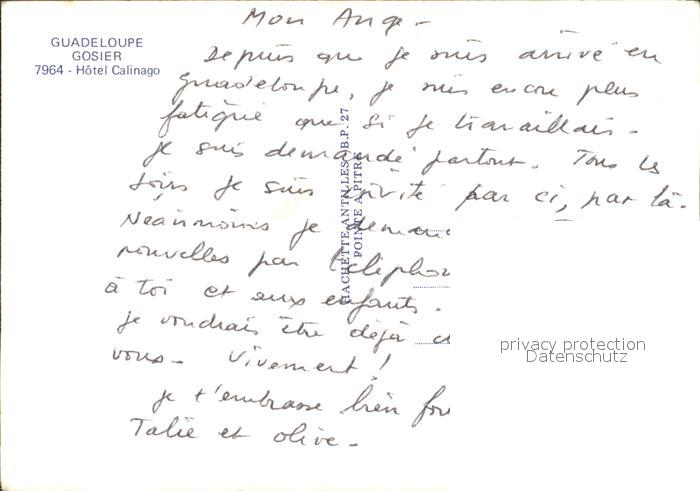 GUADELOUPE
GOSIER
7964 - Hôtel Calinago
HACHETTE ANTILLES B.P. 27
POINTE A PITRE
Mon Ange -
Depuis que je suis arrivé en
guadeloupe, je suis encore plus
fatigué que si je travaillais.
je suis demandé partout. Tous les
soirs je suis invité par ci, par là.
Néanmoins je
nouvelles par
à toi et aux enfants.
je voudrais être déjà
vous - Vivement !
je t'embrasse bien
Talie et olive -
privacy protection
Datenschutz